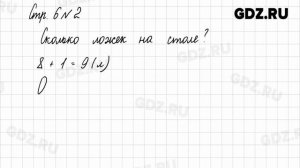 GDZ.RU
Стр. 6 N 2
Сколько ложек на столе?
8 + 1 = 9 (л)
О
GDZ.RU